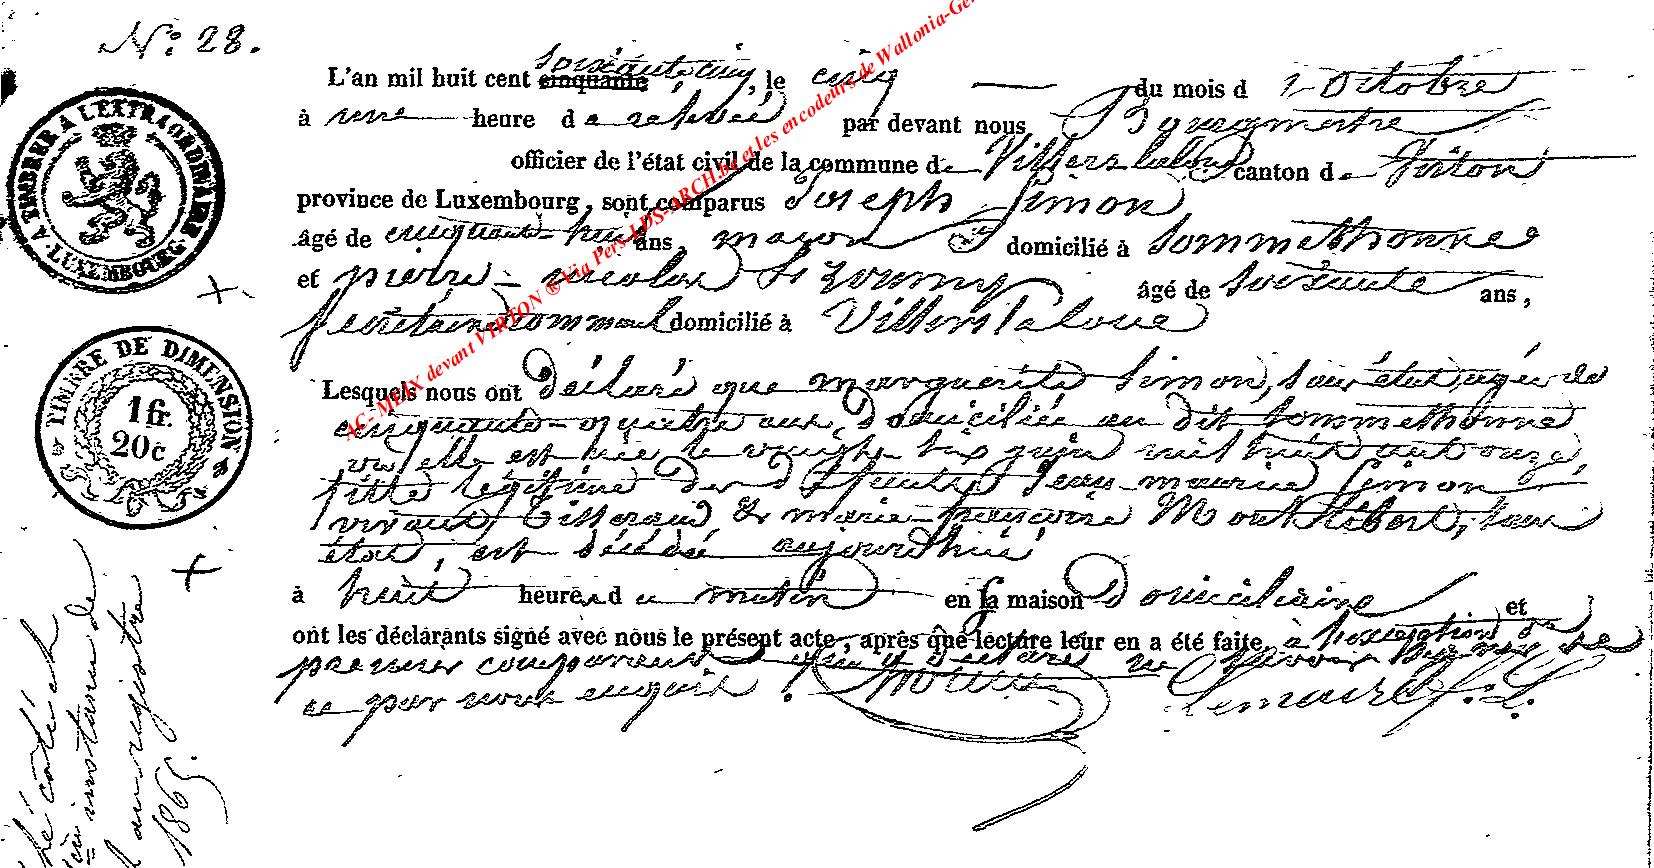 N.º 28.
A TIMBRER A L'EXTRAORDINAIRE
LUXEMBOURG
TIMBRE DE DIMENSION
1 fr.
20 c
L'an mil huit cent cinquante soixante cinq, le cinq du mois d'octobre
à une heure de relevée par devant nous, Bourgmestre
officier de l'état civil de la commune de Villers laloue canton de Virton
province de Luxembourg, sont comparus Joseph Simon
âgé de cinquante-huit ans, maçon domicilié à Sommethonne
et pierre-nicolas âgé de soixante ans,
secrétaire communal domicilié à Villers la loue
Lesquels nous ont déclaré que marguerite Simon, sans état, agée de
cinquante-quatre ans, domiciliée au dit Sommethonne
où elle est née le vingt-six juin mil huit cent onze,
fille légitime des défunts Jean-maurice Simon
vivant tisserand, & marie-françoise Montlibert, sans
état, est décédée aujourd'hui
à huit heures du matin en sa maison domiciliaire et
ont les déclarants signé avec nous le présent acte, après que lecture leur en a été faite, à l'exception du
premier comparant qui a déclaré ne savoir signer de
ce par nous enquis.
AC-MIX devant VIRTON ® Via Pers-LDS-ARCH.be et les encodeurs de Wallonia-Ge
côté
instance de
enregistré
1865.